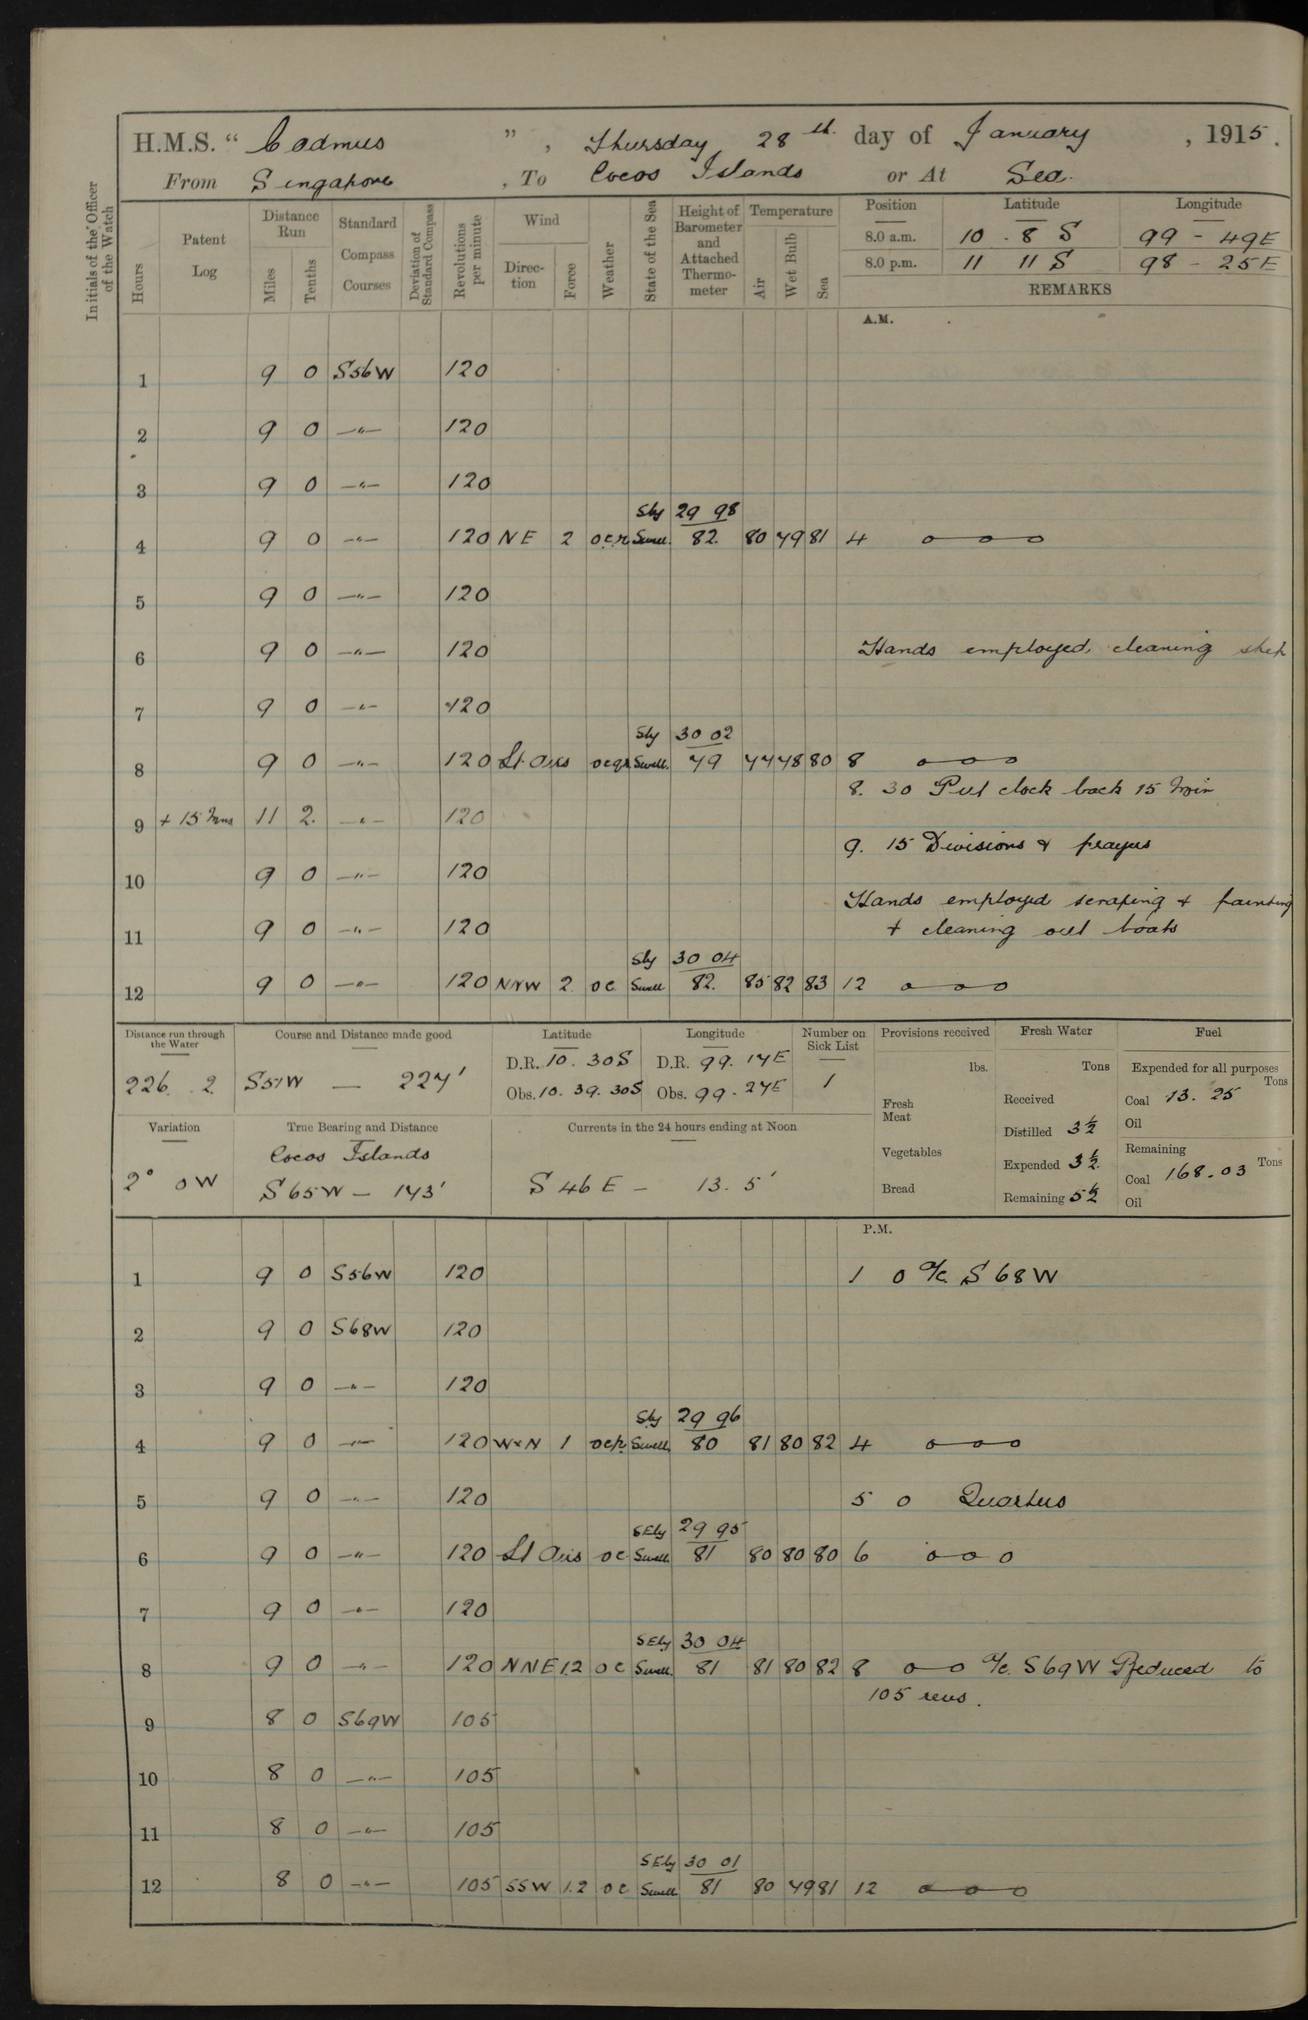 H.M.S. “ Cadmus ”, Thursday 28th day of January, 1915.
From Singapore, To Cocos Islands or At Sea.
Initials of the Officer of the Watch
Hours
Patent Log
Distance Run
Miles
Tenths
Standard Compass Courses
Deviation of Standard Compass
Revolutions per minute
Wind
Direction
Force
Weather
State of the Sea
Height of Barometer and Attached Thermometer
Temperature
Air
Wet Bulb
Sea
Position Latitude Longitude
8.0 a.m. 10 . 8 S 99 - 49E
8.0 p.m. 11 11 S 98 - 25E
REMARKS
A.M.
1 9 0 S56W 120
2 9 0 —"— 120
3 9 0 —"— 120
Sly 29 98
4 9 0 —"— 120 NE 2 ocr Swell. 82. 80 79 81 4 o—o—o
5 9 0 —"— 120
6 9 0 —"— 120 Hands employed, cleaning ship
7 9 0 —"— 120
Sly 30 02
8 9 0 —"— 120 Lt Airs ocqr Swell. 79 77 78 80 8 o—o—o
8. 30 Put clock back 15 Min
9 + 15 Mins 11 2. —"— 120
9. 15 Divisions & prayers
10 9 0 —"— 120
Hands employed scraping & painting
11 9 0 —"— 120 + cleaning out boats
Sly 30 04
12 9 0 —"— 120 NNW 2 oc Swell 82. 85 82 83 12 o—o—o
Distance run through the Water Course and Distance made good Latitude Longitude Number on Sick List Provisions received Fresh Water Fuel
226 . 2 S51W — 227' D.R. 10 . 30S D.R. 99. 17E 1
Obs. 10. 39. 30S Obs. 99 - 27E
lbs. Tons Expended for all purposes Tons
Fresh Meat Received Coal 13. 25
Distilled 3½ Oil
Variation True Bearing and Distance Currents in the 24 hours ending at Noon
Cocos Islands
2° 0W S 65W — 173' S 46 E — 13. 5'
Vegetables Expended 3½ Remaining Tons
Coal 168.03
Bread Remaining 5½ Oil
P.M.
1 9 0 S56W 120 1 0 a/c. S 68W
2 9 0 S68W 120
3 9 0 —"— 120
Sly 29 96
4 9 0 —"— 120 WxN 1 ocp. Swell 80 81 80 82 4 o—o—o
5 9 0 —"— 120 5 0 Quarters
SEly 29 95
6 9 0 —"— 120 Lt Airs oc Swell 81 80 80 80 6 o—o o
7 9 0 —"— 120
SEly 30 04
8 9 0 —"— 120 NNE 1.2 oc Swell. 81 81 80 82 8 o—o a/c. S69W Reduced to
105 revs.
9 8 0 S69W 105
10 8 0 —"— 105
11 8 0 —"— 105
SEly 30 01
12 8 0 —"— 105 SSW 1.2 oc Swell 81 80 79 81 12 o—o—o